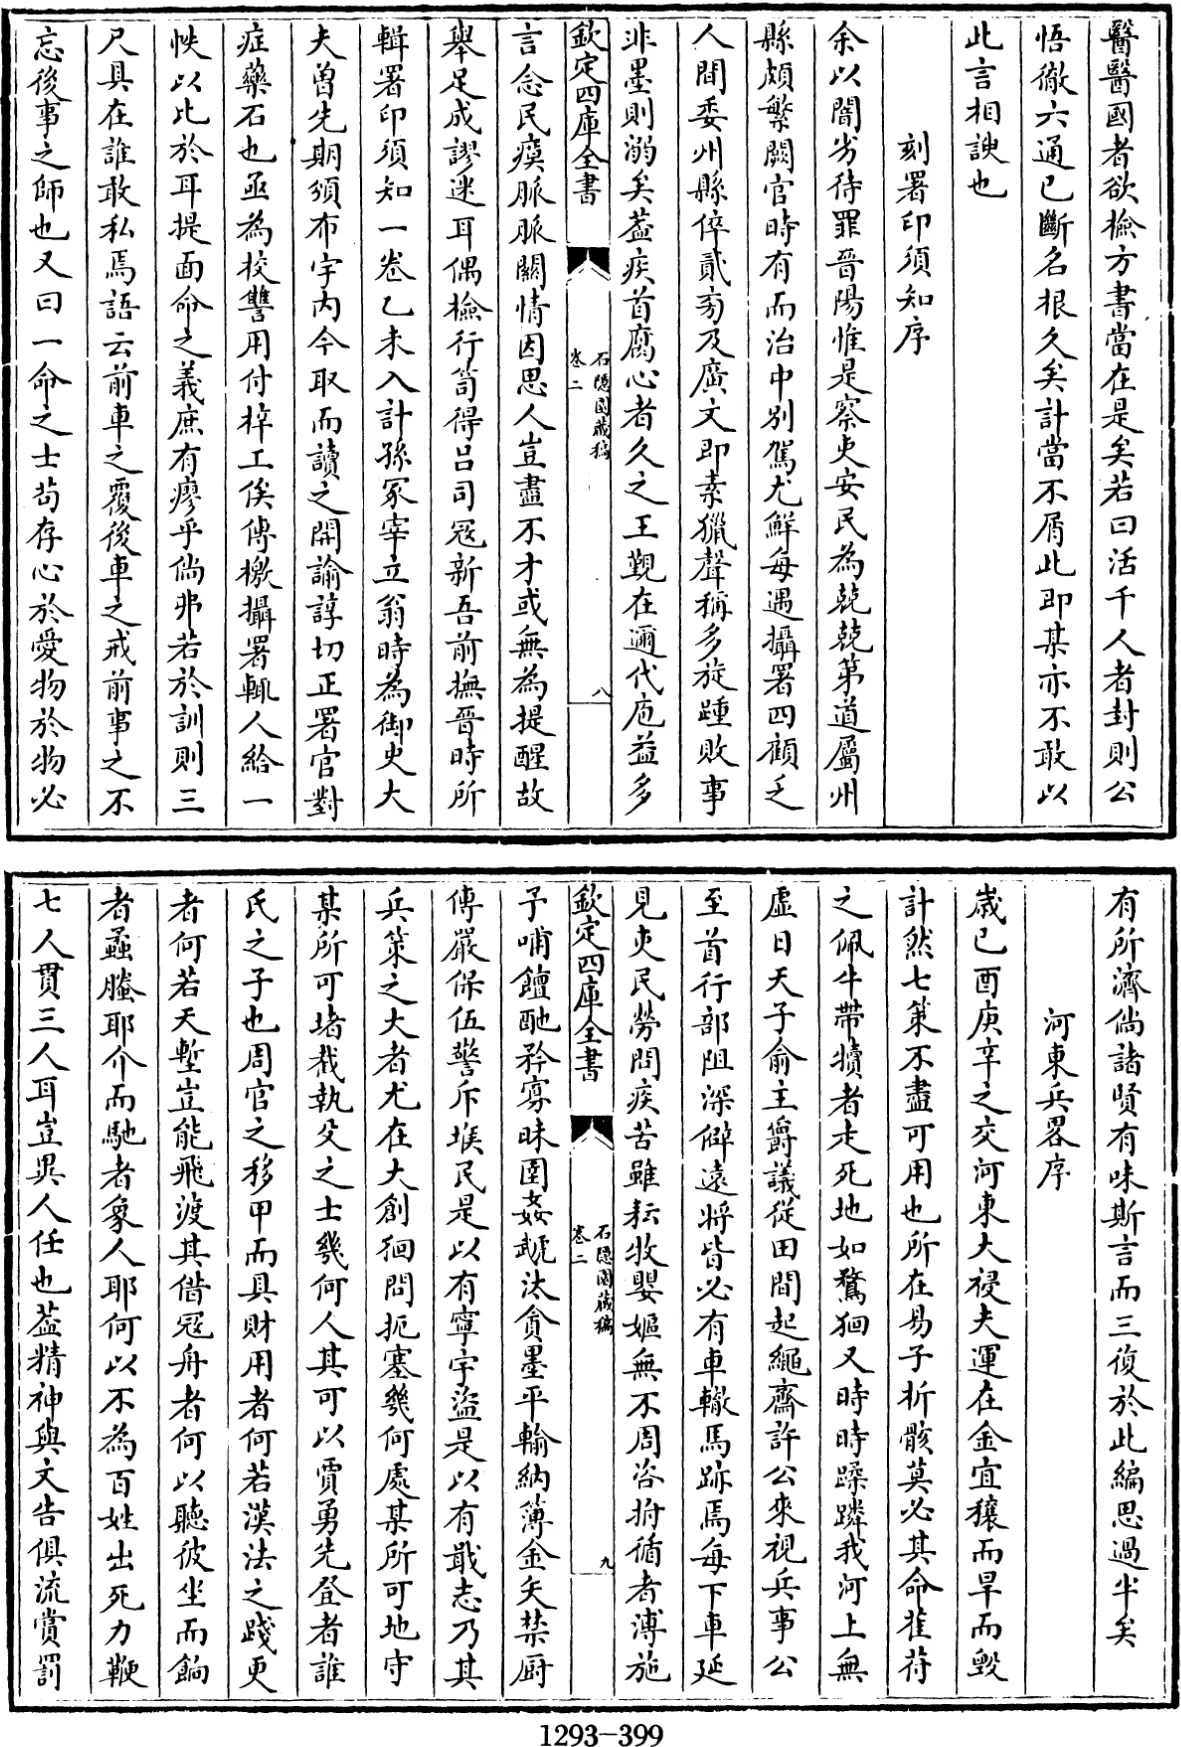 醫醫國者欲檢方書當在是矣若曰活千人者封則公
悟徹六通已斷名根久矣計當不屑此即某亦不敢以
此言相諛也
刻署印須知序
余以闇劣待罪晉陽惟是察吏安民為兢兢第道屬州
縣頗繁闕官時有而治中別駕尤鮮每遇攝署四顧乏
人間委州縣倅貳旁及廣文即素獵聲稱多旋踵敗事
非墨則溺矣葢疾首腐心者久之王覲在邇代庖益多
欽定四庫全書
石隱園藏稿
卷二
八
言念民瘼脈脈關情因思人豈盡不才或無為提醒故
舉足成謬迷耳偶檢行笥得吕司冦新吾前撫晉時所
輯署印須知一卷乙未入計孫冢宰立翁時為御史大
夫曽先期頒布宇内今取而讀之開諭諄切正署官對
症藥石也亟為校讐用付梓工俟傳檄攝署輒人給一
帙以比於耳提面命之義庶有瘳乎倘弗若於訓則三
尺具在誰敢私焉語云前車之覆後車之戒前事之不
忘後事之師也又曰一命之士苟存心於愛物於物必
有所濟倘諸賢有味斯言而三復於此編思過半矣
河東兵畧序
歳已酉庚辛之交河東大祲夫運在金宜穰而旱而毁
計然七策不盡可用也所在易子析骸莫必其命萑苻
之佩牛帶犢者走死地如鶩狪又時時蹂躪我河上無
虛日天子俞主爵議從田間起繩齋許公來視兵事公
至首行部阻深僻遠將皆必有車轍馬跡焉每下車延
見吏民勞問疾苦雖耘牧嬰嫗無不周咨拊循者溥施
欽定四庫全書
石隱園藏稿
卷二
九
予哺饘酏矜寡昧圄姦虣汰貪墨平輸納薄金矢禁厨
傳嚴保伍警斥堠民是以有寧宇盜是以有戢志乃其
兵策之大者尤在大創狪問扼塞幾何處某所可地守
某所可堵截執殳之士幾何人其可以賈勇先登者誰
氏之子也周官之移甲而具財用者何若漢法之踐更
者何若天塹豈能飛渡其借冦舟者何以聽彼坐而餉
者蟊螣耶介而馳者象人耶何以不為百姓出死力鞭
七人貫三人耳豈異人任也葢精神與文告俱流賞罰
1293-399